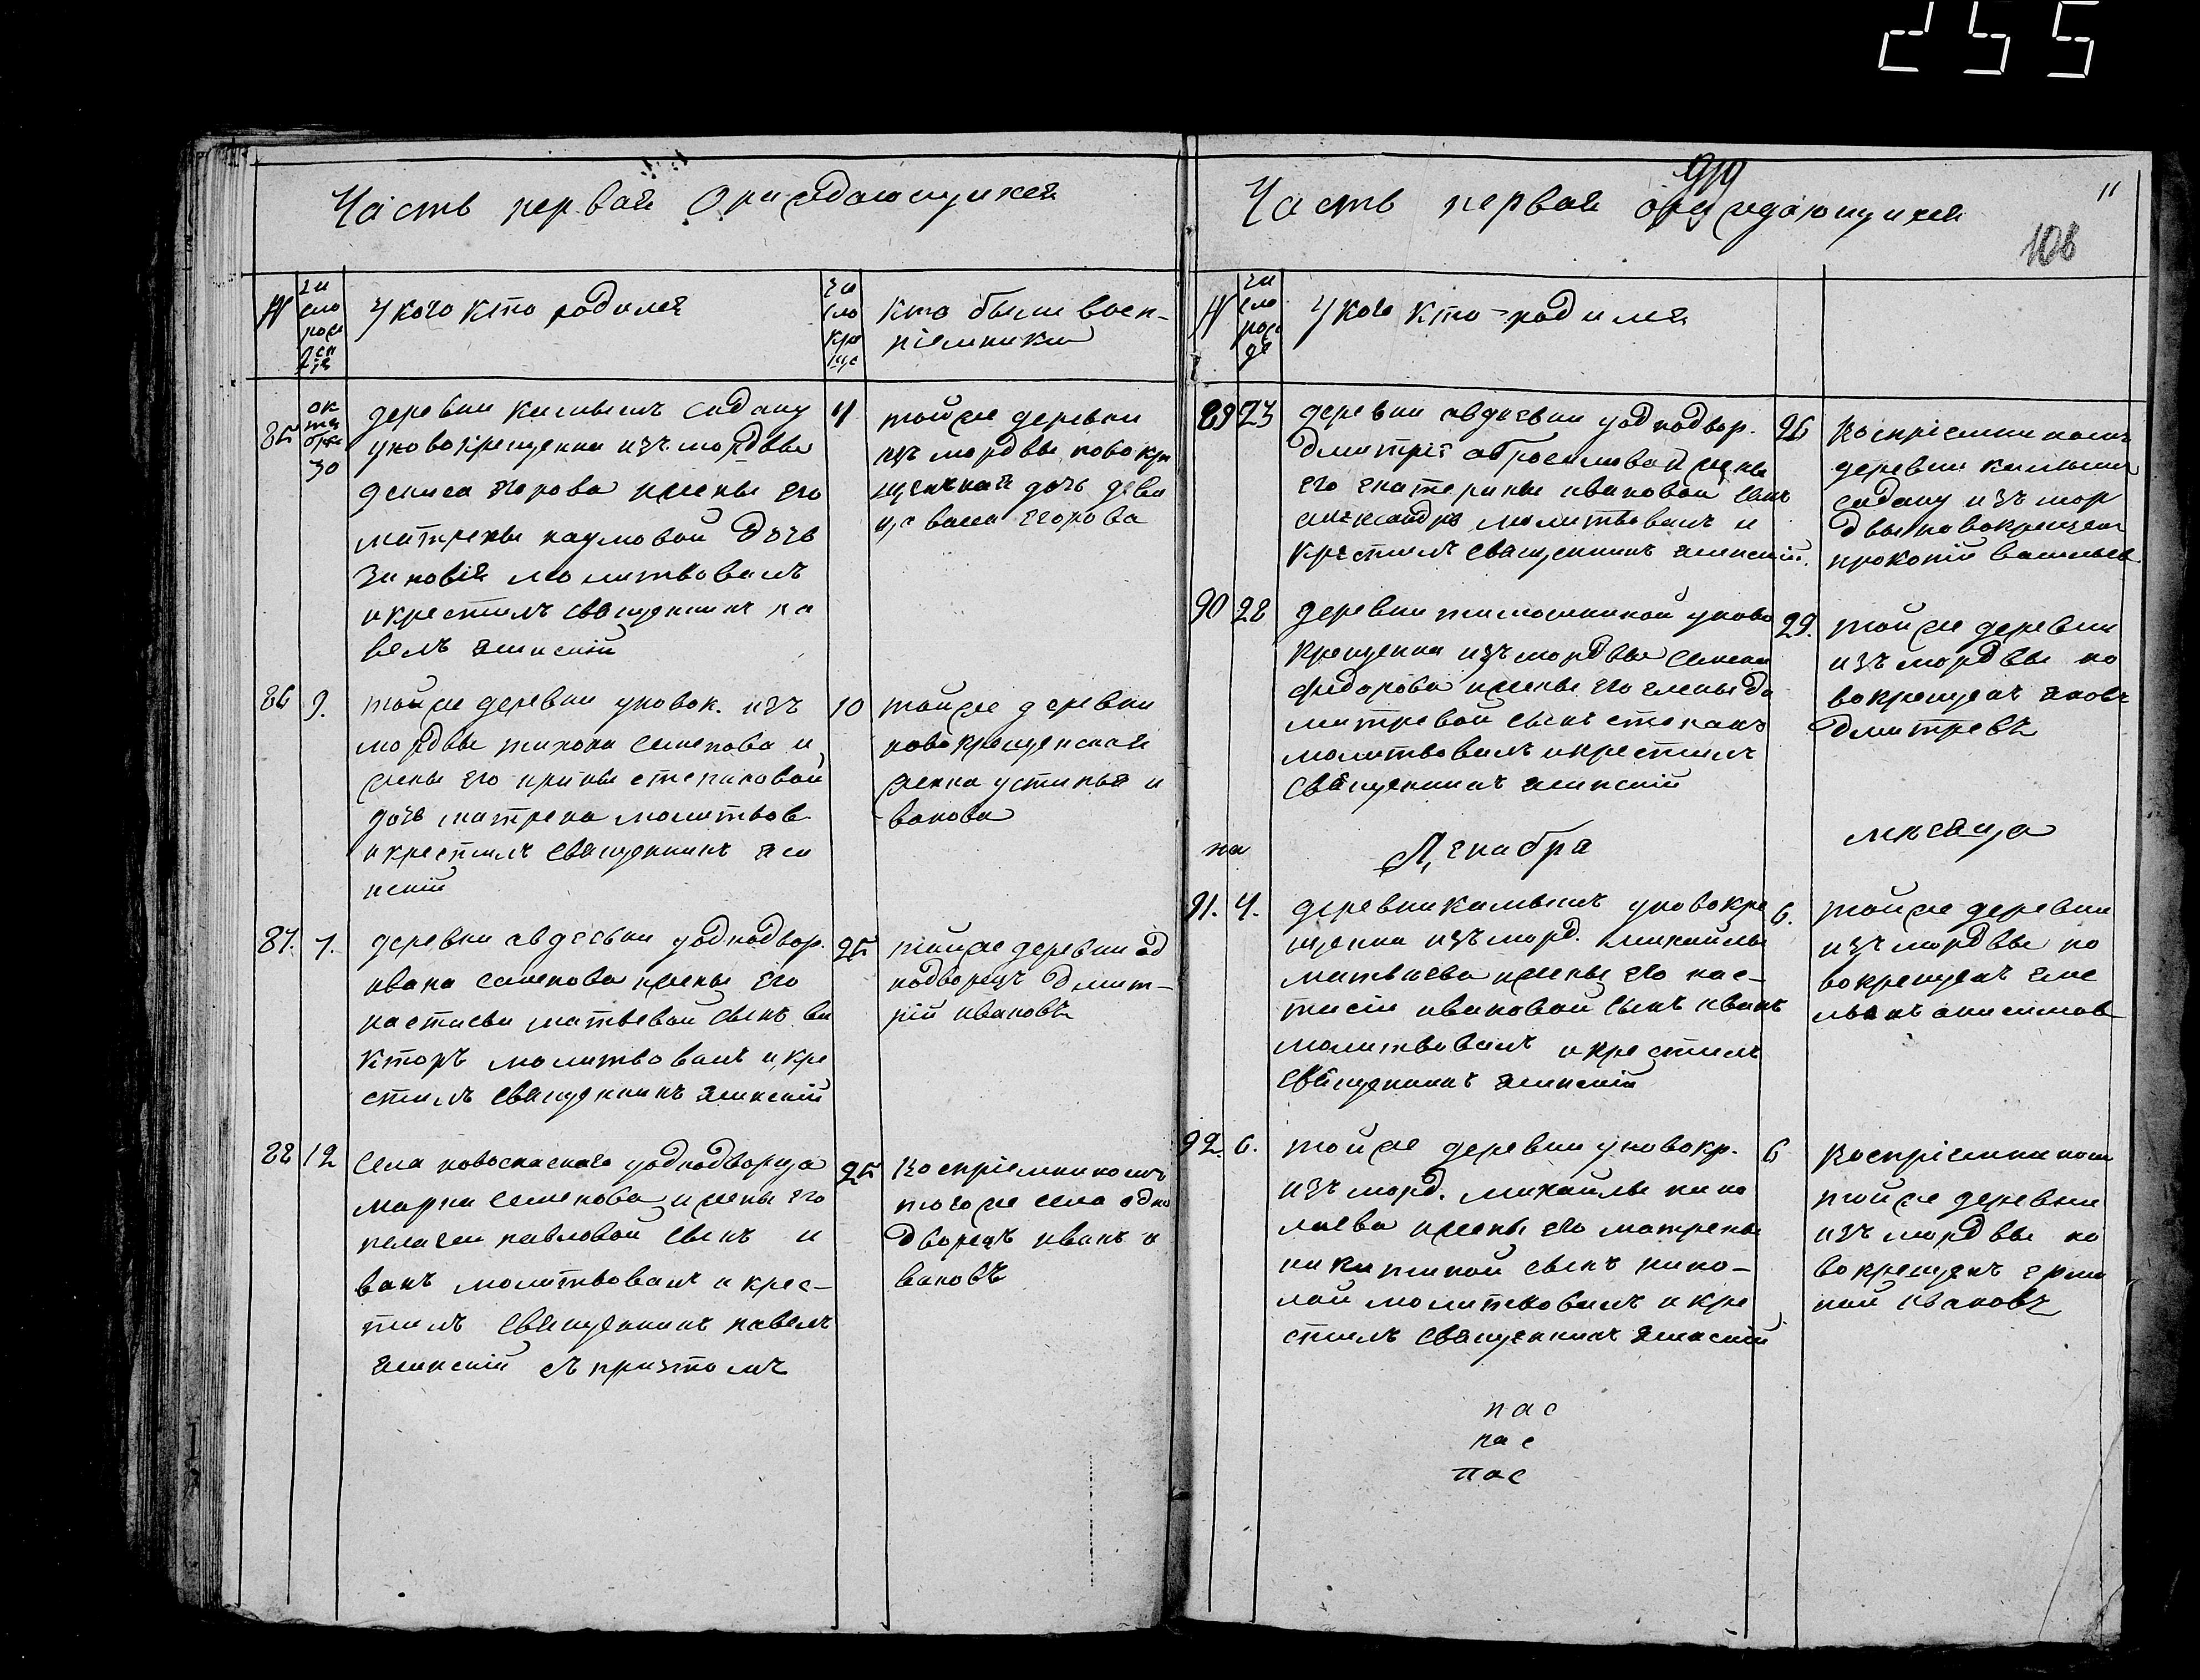 255
Часть первая О раждающихся
N
чи
сло
рож
ден
у кого кто родился
чи
сло
кре
ще
кто были восп-
ріемники
85
ок
тя
бря
30
деревни
уновокрещенна изъ мордвы
дениса егорова ижены его
матрены наумовой дочь
зиновія молитвовалъ
икрестилъ священникъ па
велъ
4
тойже деревни
изъ мордвы новокре
щенная дочь деви
ца васса егорова
86
9.
тойже деревни уновок. изъ
мордвы тихона семенова и
жены его ирины степановой
дочь матрена молитвов
икрестилъ священникъ
10
тойже деревни
новокрещенская
женка устинья и
ванова
87.
7.
деревни авдеевки уоднодвор.
ивана семенова ижены его
настасьи матвевой сынъ ви
кторъ молитвовалъ икре
стилъ священникъ
25
тойже деревни од
нодворецъ дмит-
рій ивановъ
88
12
села новоспаскаго уоднодворца
марка семенова ижены его
пелагеи павловой сынъ и
ванъ молитвовалъ и крес-
тилъ священникъ павелъ
съ причтомъ
25
воспріемникомъ
тогоже села одно
дворецъ иванъ и
вановъ
Часть первая ораждающихся
11
108
N
чи
сло
рож
де
у кого кто родился
89
23
деревни авдеевки уоднодвор.
дмитрія абросимова и жены
его екатерины ивановой сынъ
александръ молитвовалъ и
крестилъ священникъ
26
воспріемникомъ
деревни
изъ мор
двы новокрещен
прокопій васильев
90
28
деревни тимошкиной уново
крещенна изъ мордвы семена
федорова ижены его елены да
митревой сынъ степанъ
молитвовалъ икрестилъ
священникъ
29.
тойже деревни
изъ мордвы но
вокрещенъ яковъ
дмитревъ
на
Декабря
месяца
91.
4.
деревни уновокре
щенна изъ морд. михайлы
матвиева ижены его нас-
тасіи ивановой сынъ иванъ
молитвовалъ икрестилъ
священникъ
6.
тойже деревни
изъ мордвы но
вокрещенъ еме
льянъ анисимов
92.
6.
тойже деревни уновокр.
изъ морд. михайлы нико
лаева ижены его матрены
никитиной сынъ нико-
лай молитвовалъ и кре
стилъ священникъ
6
воспріемникомъ
тойже деревни
изъ мордвы но
вокрещенъ ермо
лай ивановъ
пас
пас
пас